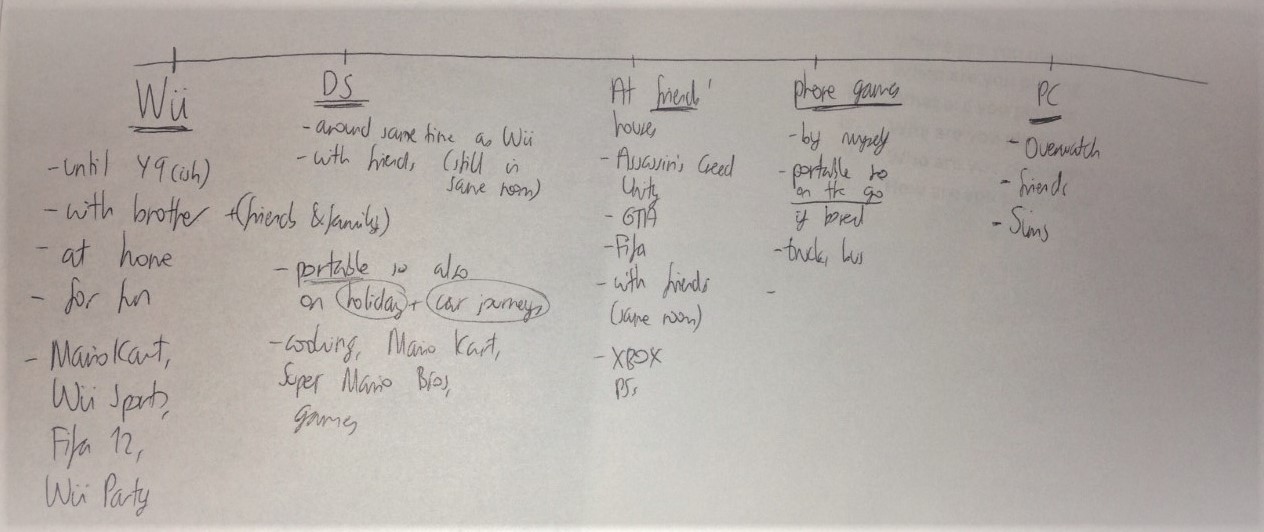 Wii
- until Y9 (ish)
- with brother + (friends & family)
- at home
- for fun
- Mario Kart,
Wii Sports,
Fifa 12,
Wii Party
DS
- around same time as Wii
- with friends (still in
same room)
- portable so also
on holiday + car journeys
- cooking, Mario Kart,
Super Mario Bros,
games
At friends'
houses
- Assassin's Creed
Unity
- GTA
- Fifa
- with friends
(same room)
- XBOX
PS
phone games
- by myself
- portable so
on the go
if bored
- bus
-
PC
- Overwatch
- friends
- Sims